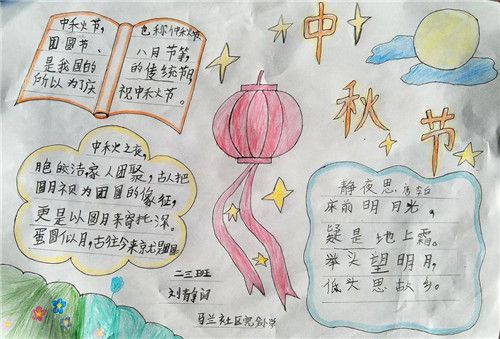 中秋节
中秋节，
团圆节、
是我国的
所以为了庆
也称仲秋节
八月节等，
的传统节日，
祝中秋节。
中秋之夜，
皎洁,家人团聚，古人把
圆月视为团圆的象征，
更是以圆月来寄托深。
蛋圆似月，古往今来
静夜思 李白
床前明月光，
疑是地上霜。
举头望明月，
低头思故乡。
二三班
刘静
社区完全小学